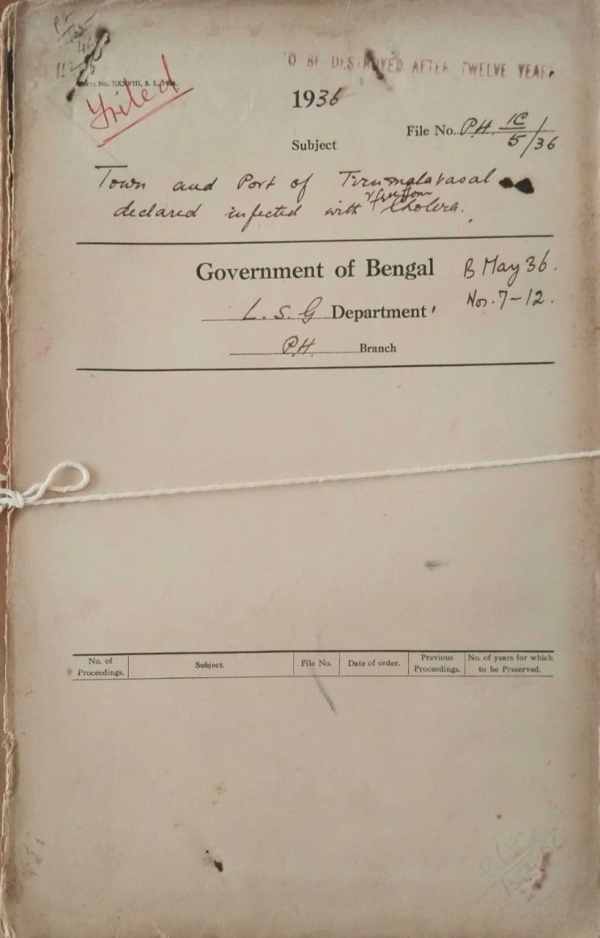 TO BE DESTROYED AFTER TWELVE YEARS
No. XXXVIII, S. L.
1936
File No. P.H. 1C/5 1/36
Subject
Town and Port of Tirumalavasal
declared infected with & free from Cholera.
Government of Bengal
B May 36.
Nos. 7-12.
L. S. G Department
P.H. Branch
No. of Proceedings.
Subject.
File No.
Date of order.
Previous Proceedings.
No. of years for which to be Preserved.